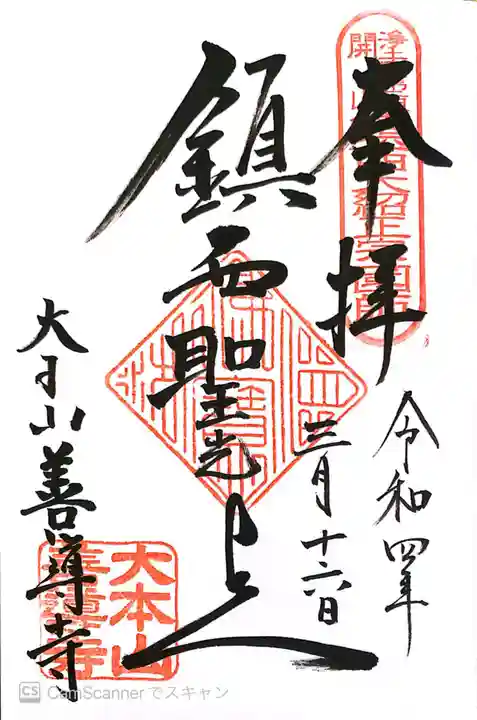 奉拝
令和四年
三月十六日
鎮西聖光上人
大本山善導寺
大本山
善導寺
開山
大紹正宗国師
CS CamScannerでスキャン